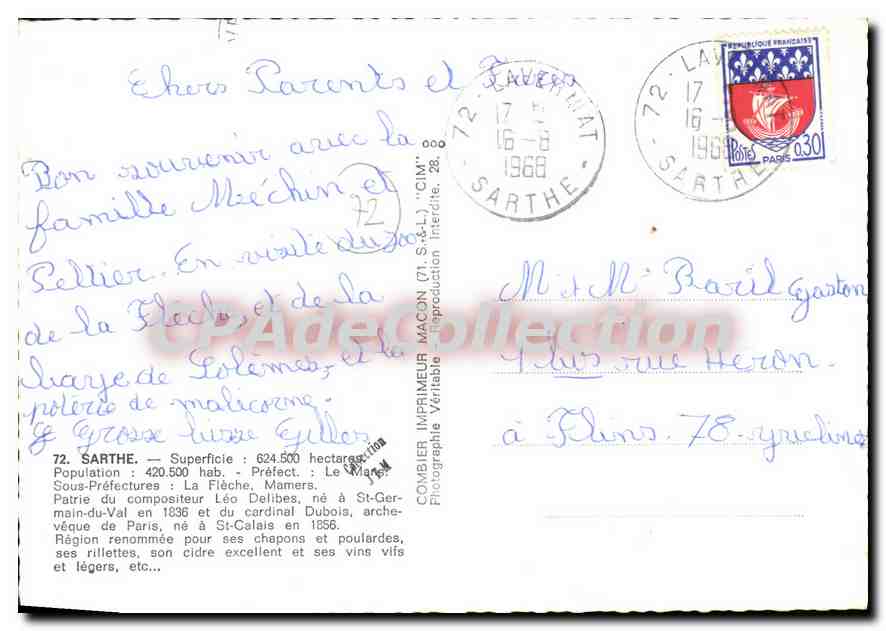 Chers Parents et Freres
Bon souvenir avec la
famille Méchin et
72
Peltier. En visite du zoo
de la Flèche, et de la
barge de Solèmes, et la
poterie de malicorne.
Grosse bisse Gilles
72. SARTHE. — Superficie : 624.500 hectares.
Population : 420.500 hab. - Préfect. : Le Mans.
Sous-Préfectures : La Flèche, Mamers.
Patrie du compositeur Léo Delibes, né à St-Ger-
main-du-Val en 1836 et du cardinal Dubois, arche-
vêque de Paris, né à St-Calais en 1856.
Région renommée pour ses chapons et poulardes,
ses rillettes, son cidre excellent et ses vins vifs
et légers, etc...
Collection
J F M
COMBIER IMPRIMEUR MACON (71. S.-&-L.) "CIM"
Photographie Véritable - Reproduction Interdite. 28. 8
72 - LAVERNAT
17 H
16-8
1968
- SARTHE -
72 - LAV
17
16-8
1968
- SARTHE
REPUBLIQUE FRANÇAISE
POSTES 0,30
PARIS
M et Me Baril Gaston
rue Heron.
à Flins. 78. yvelines
CPAdeCollection